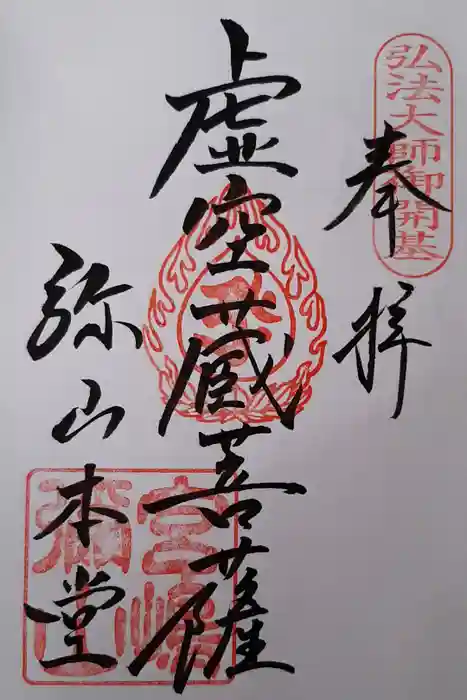 弘法大師御開基
奉拝
虚空蔵菩薩
弥山本堂
宮嶋
彌山